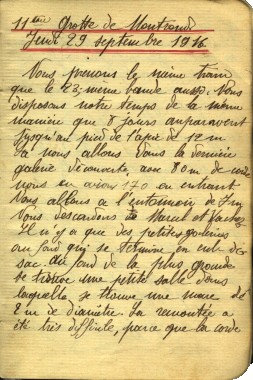 11ème Grotte de Montrond
Jeudi 29 septembre 1916.
Nous prenons le même train
que le 23, même bande aussi. Nous
disposons notre temps de la même
manière que 8 jours auparavent
jusqu'au pied de l'apic de 12 m
là nous allons dans la dernière
galerie découverte, avec 80 m de corde
nous en avions 170 en entrant
Nous allons a l'entonnoir de
Nous descendons Marcel et
Il n'y a que des petites galeries
au fond qui se termine en cul de
sac. Au fond de la plus grande
se trouve une petite salle dans
laquelle se trouve une mare de
2 m de diamètre. La remontée a
été très difficile, parce que la corde